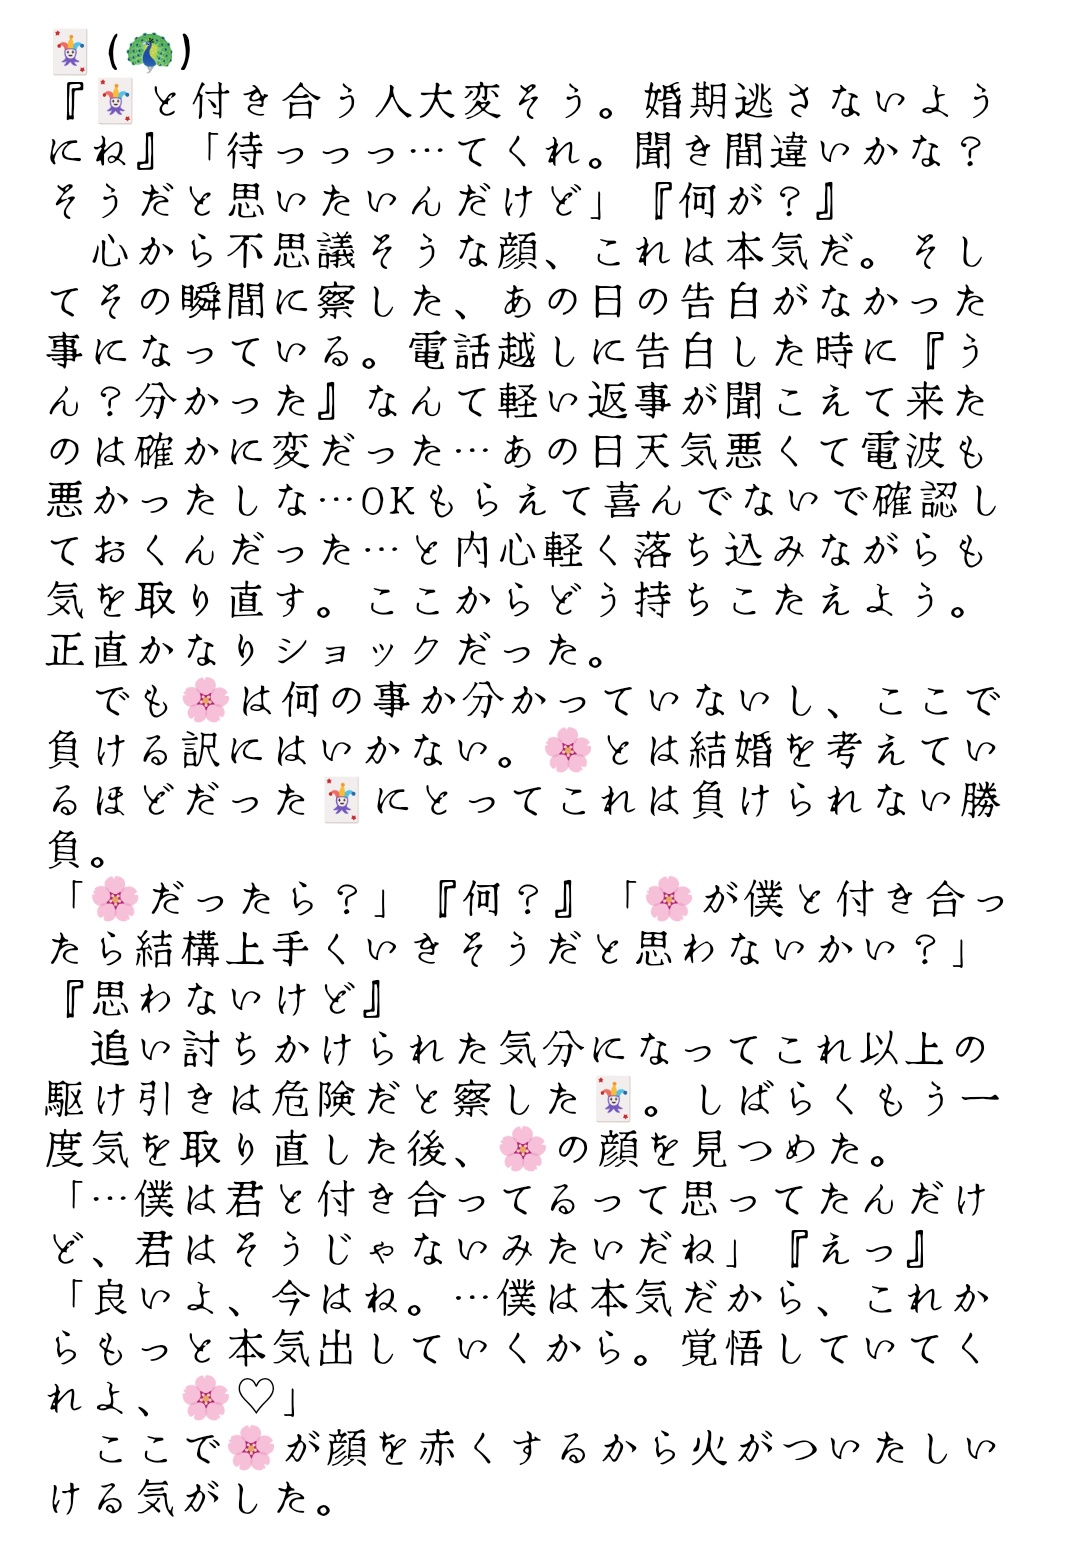 🃏(🦚)
『🃏と付き合う人大変そう。婚期逃さないよう
にね』「待っっっ…てくれ。聞き間違いかな？
そうだと思いたいんだけど」『何が？』
　心から不思議そうな顔、これは本気だ。そし
てその瞬間に察した、あの日の告白がなかった
事になっている。電話越しに告白した時に『う
ん？分かった』なんて軽い返事が聞こえて来た
のは確かに変だった…あの日天気悪くて電波も
悪かったしな…OKもらえて喜んでないで確認し
ておくんだった…と内心軽く落ち込みながらも
気を取り直す。ここからどう持ちこたえよう。
正直かなりショックだった。
　でも🌸は何の事か分かっていないし、ここで
負ける訳にはいかない。🌸とは結婚を考えてい
るほどだった🃏にとってこれは負けられない勝
負。
「🌸だったら？」『何？』「🌸が僕と付き合っ
たら結構上手くいきそうだと思わないかい？」
『思わないけど』
　追い討ちかけられた気分になってこれ以上の
駆け引きは危険だと察した🃏。しばらくもう一
度気を取り直した後、🌸の顔を見つめた。
「…僕は君と付き合ってるって思ってたんだけ
ど、君はそうじゃないみたいだね」『えっ』
「良いよ、今はね。…僕は本気だから、これか
らもっと本気出していくから。覚悟していてく
れよ、🌸♡」
　ここで🌸が顔を赤くするから火がついたしい
ける気がした。